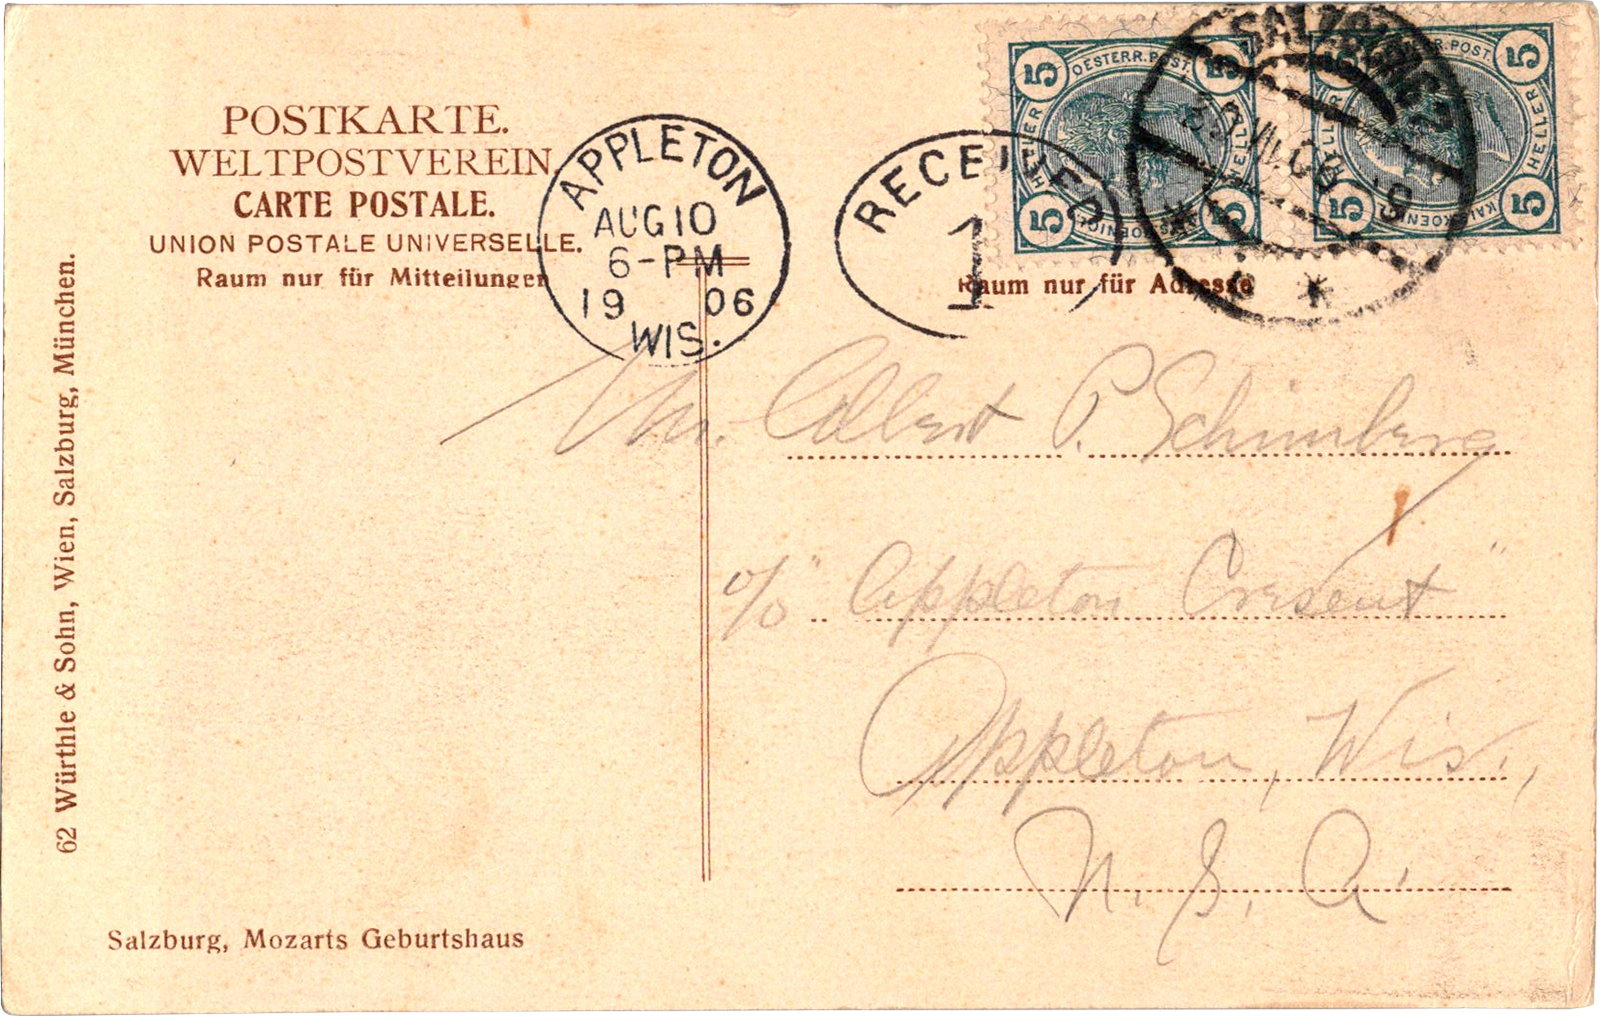 POSTKARTE.
WELTPOSTVEREIN.
CARTE POSTALE.
UNION POSTALE UNIVERSELLE.
Raum nur für Mitteilungen
APPLETON
AUG 10
6-PM
19 06
WIS.
RECEIVED
1
5 OESTERR. POST. 5
HELLER HELLER
5 5
5 OESTERR. POST. 5
HELLER HELLER
5 5
SALZBURG
Raum nur für Adresse
Mr. Albert P. Schimberg
c/o "Appleton Cresent"
Appleton, Wis.,
U. S. A.
62 Würthle & Sohn, Wien, Salzburg, München.
Salzburg, Mozarts Geburtshaus